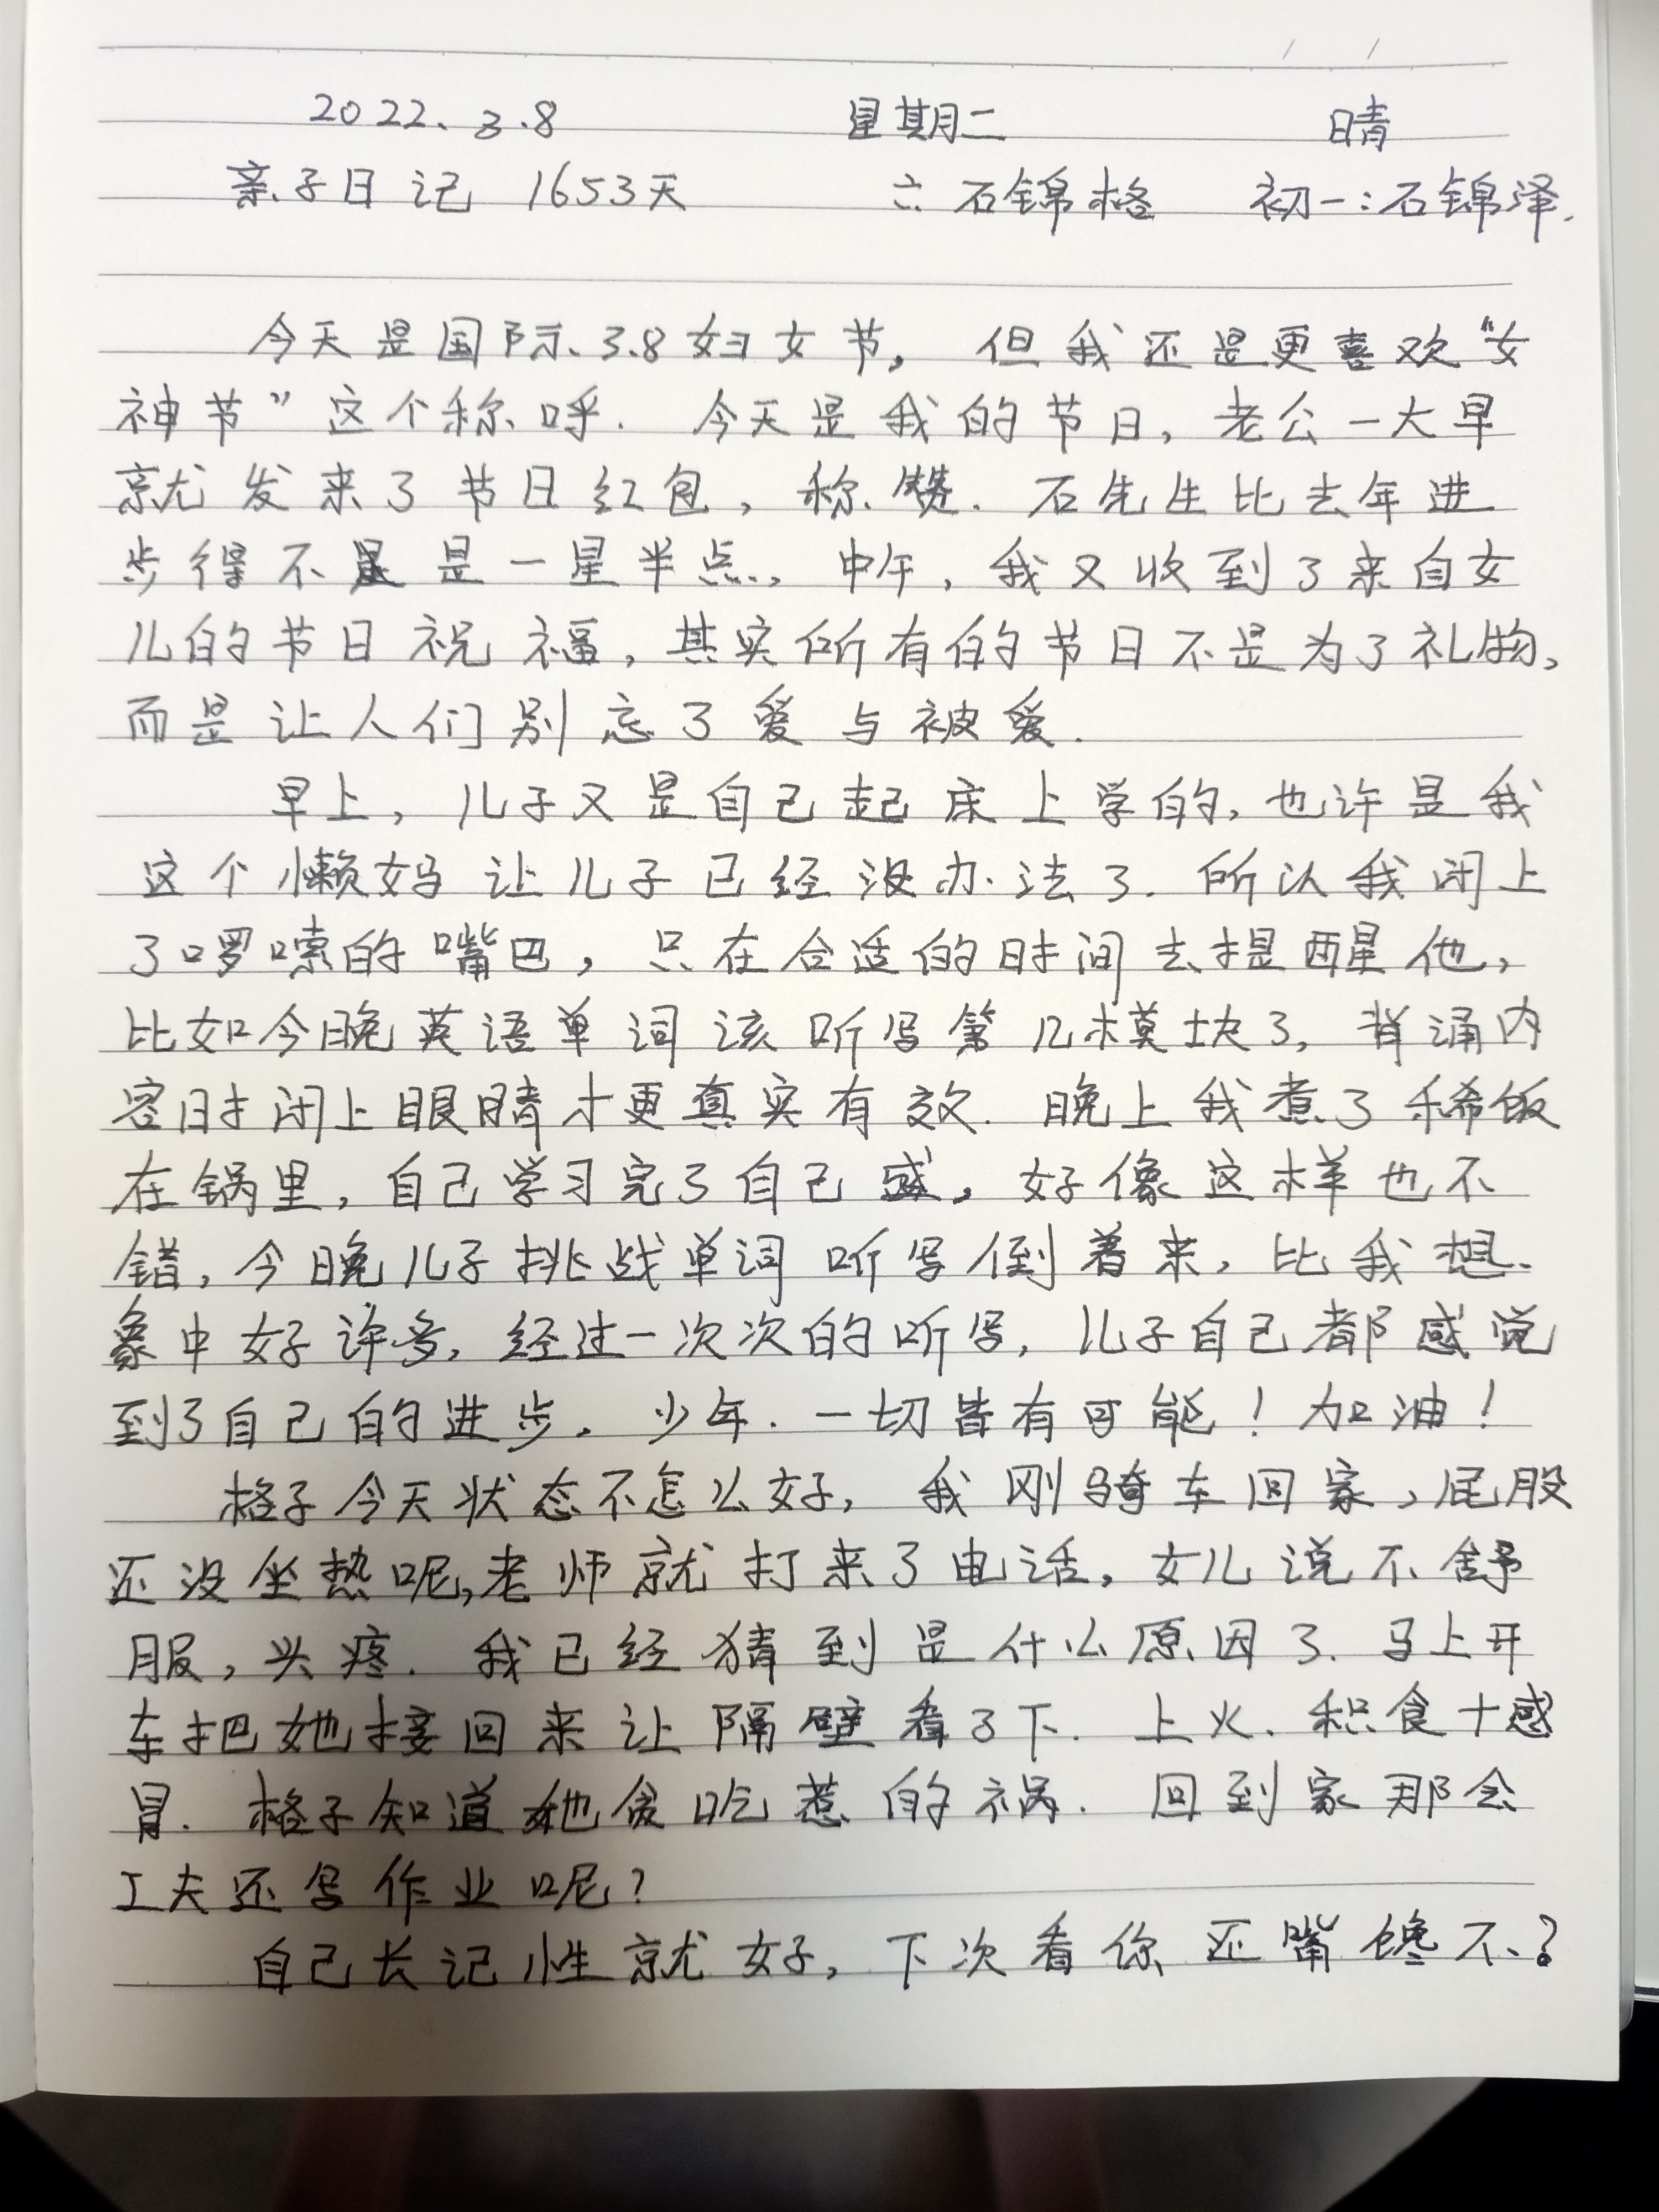 2022.3.8 星期二 晴
亲子日记 1653天 六 石锦格 初一:石锦泽.
今天是国际.3.8妇女节, 但我还是更喜欢“女
神节”这个称呼. 今天是我的节日,老公一大早
就发来了节日红包,称赞. 石先生比去年进
步得不是一星半点., 中午,我又收到了来自女
儿的节日祝福,其实所有的节日不是为了礼物,
而是让人们别忘了爱与被爱.
早上,儿子又是自己起床上学的,也许是我
这个懒妈让儿子已经没办法了. 所以我闭上
了啰嗦的嘴巴,只在合适的时间去提醒他,
比如今晚英语单词该听写第几模块了,背诵内
容时闭上眼睛才更真实有效. 晚上我煮了稀饭
在锅里,自己学习完了自己盛,好像这样也不
错,今晚儿子挑战单词听写倒着来,比我想
象中好许多,经过一次次的听写,儿子自己都感觉
到了自己的进步. 少年.一切皆有可能!加油!
格子今天状态不怎么好,我刚骑车回家,屁股
还没坐热呢,老师就打来了电话,女儿说不舒
服,头疼. 我已经猜到是什么原因了.马上开
车把她接回来让隔壁看了下. 上火.积食十感
冒. 格子知道她贪吃惹的祸. 回到家那会
工夫还写作业呢?
自己长记性就好,下次看你还嘴馋不?